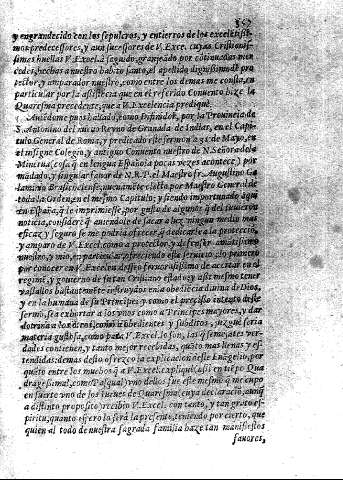 y engrandecido con los sepulcros, y entierros de los excelentis-
simos predecessores, y antecessores de V. Exce. cuyas Cristianis-
simas huellas V. Excel. a seguido, grangeado por continuadas mer-
cedes, hechas a nuestro habito santo, el apellido dignissimo de pro
tector, y amparador nuestro, como entre los demas me consta, en
particular por la assistēcia que en el referido Conuento hize la
Quaresma precedente, que a V. Excelencia prediquè.
Auiēdome pues hallado, como Difinidor, por la Prouincia de
S. Antonino del nueuo Reyno de Granada de Indias, en el Capi-
tulo General de Roma, y predicado este sermon a 21 de Mayo, en
el insigne Colegio, y antiguo Conuento nuestro de N. Señora de la
Minerua, cosa q̃ en lengua Española pocas vezes acontece) por
mādado, y singular fauor de N. R. P. el Maestro fr. Augustino Ga
lamino Brasichiense, nueuamēte electo por Maestro General de
toda la Orden, en el mismo Capitulo; y siendo importunado aqui
en España, q̃ le imprimiesse, por gusto de algunos q̃ del tuuieron
noticia, considerè q̃ auiendole de sacar a luz, ningun medio mas
eficaz y seguro se me podria ofrecer, q̃ dedicarle a la protecciō,
y amparo de V. Excel. como a protector, y defensor amātissimo
nuestro, y mio, en particular, ofreciendo este seruicio,
por conocer en V. Excel. vn desseo feruorosissimo de acertar en el
regimē, y gouierno de su tan Cristiano estado; y assi mesmo tener
vassallos bastantemēte instruydos en la obediēcia diuina de Dios,
y en la humana de su Principe; y como el precisso intento deste
sermō, sea exhortar a los vnos como a Principes mayores, y dar
dotrina a los otros, como a obedientes y subditos, juzguè seria
materia gustosa, como para V. Excel. lo son, las q̃ semejātes ver-
dades contienen, y tanto mejor recebidas, quāto mas llenas y es-
tendidas; demas desto ofrezco la explicacion deste Euāgelio, por
quāto entre los muchos q̃ a V. Excel. expliquè assi en tiēpo Qua
dragesimal, como Pasqual, vno dellos fue este mesmo q̃ me cupo
en suerte vno de los Iueues de Quaresma, cuya declaraciō, aunq̃
a distinto proposito) recibio V. Excel. con tanto, y tan grato es-
piritu, quanto espero lo serà la presente, teniendo por cierto, que
quien al todo de nuestra sagrada familia haze tan manifiestos
fauores,